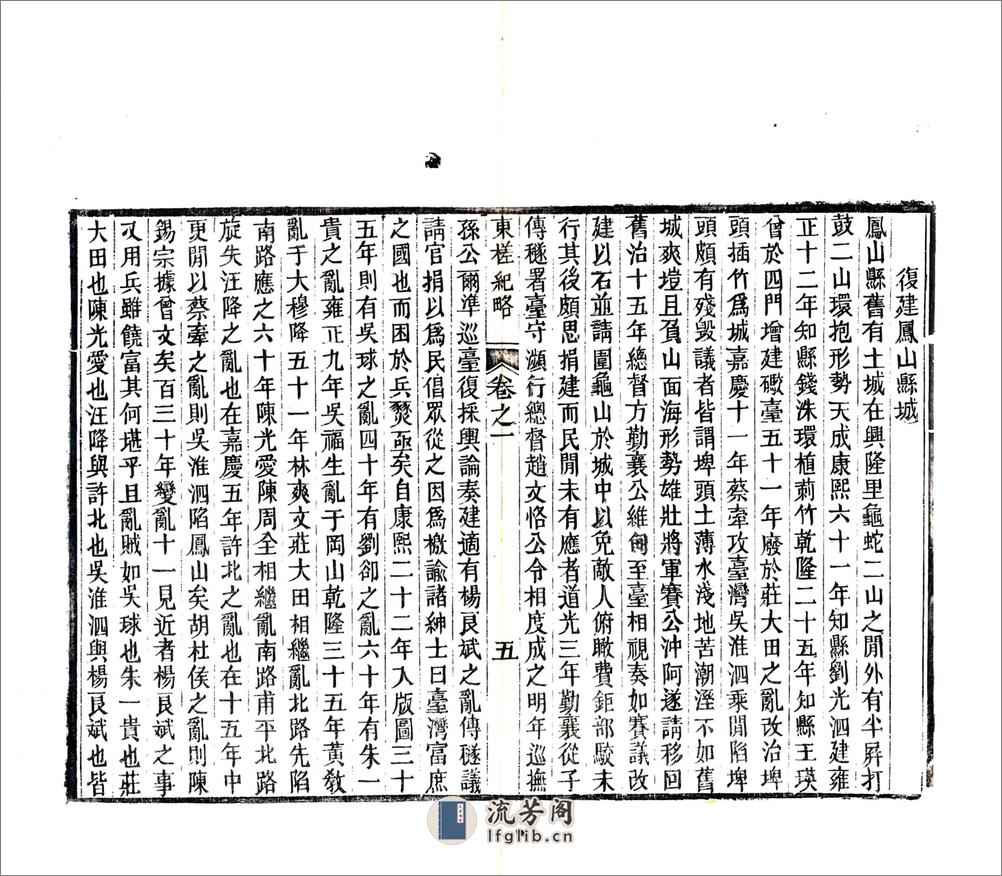 復建鳳山縣城
鳳山縣舊有土城在興隆里龜蛇二山之閒外有半屛打
鼓二山環抱形勢天成康熙六十一年知縣劉光泗建雍
正十二年知縣錢洙環植莿竹乾隆二十五年知縣王瑛
曾於四門增建礮臺五十一年廢於莊大田之亂改治埤
頭插竹爲城嘉慶十一年蔡牽攻臺灣吳淮泗乘閒陷埤
頭頗有殘毀議者皆謂埤頭土薄水淺地苦潮溼不如舊
城爽塏且負山面海形勢雄壯將軍賽公沖阿遂請移回
舊治十五年總督方勤襄公維甸至臺相視奏如賽議改
建以石並請圍龜山於城中以免敵人俯瞰費鉅部駮未
行其後頗思捐建而民閒未有應者道光三年勤襄從子
傳穟署臺守瀕行總督趙文恪公令相度成之明年巡撫
東槎紀略 卷之一 五
孫公爾準巡臺復採輿論奏建適有楊良斌之亂傳穟議
請官捐以爲民倡眾從之因爲檄諭諸紳士曰臺灣富庶
之國也而困於兵燹亟矣自康熙二十二年入版圖三十
五年則有吳球之亂四十年有劉卻之亂六十年有朱一
貴之亂雍正九年吳福生亂于岡山乾隆三十五年黃敎
亂于大穆降五十一年林爽文莊大田相繼亂北路先陷
南路應之六十年陳光愛陳周全相繼亂南路甫平北路
旋失汪降之亂也在嘉慶五年許北之亂也在十五年中
更閒以蔡牽之亂則吳淮泗陷鳳山矣胡杜侯之亂則陳
錫宗據曾文矣百三十年變亂十一見近者楊良斌之事
又用兵雖饒富其何堪乎且亂賊如吳球也朱一貴也莊
大田也陳光愛也汪降與許北也吳淮泗與楊良斌也皆
流芳阁
lfglib.cn